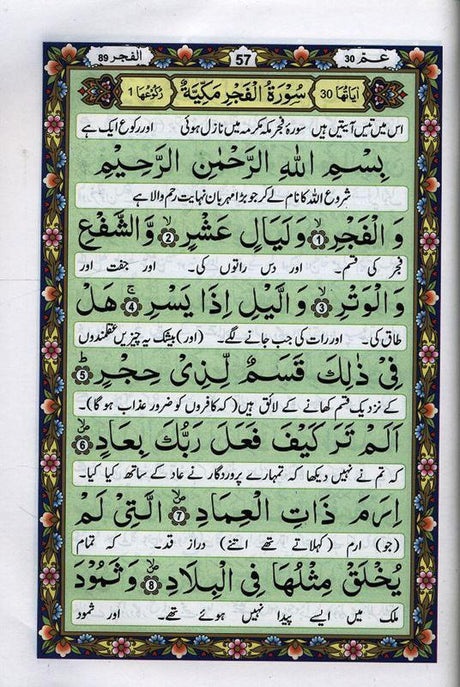 عـمّ 30 57 الفجر 89
اٰیاتها 30 سُوْرَةُ الْفَجْرِ مَكِّیَّةٌ رکوعها 1
اس میں تیس آیتیں ہیں سورۂ فجر مکہ مکرمہ میں نازل ہوئی اور رکوع ایک ہے
بِسْمِ اللّٰهِ الرَّحْمٰنِ الرَّحِیْمِ
شروع اللہ کا نام لے کر جو بڑا مہربان نہایت رحم والا ہے
وَ الْفَجْرِۙ ۱ وَلَیَالٍ عَشْرٍۙ ۲ وَّالشَّفْعِ
فجر کی قسم۔ اور دس راتوں کی۔ اور جفت اور
وَالْوَتْرِۙ ۳ وَالَّیْلِ اِذَا یَسْرِۚ ۴ هَلْ
طاق کی۔ اور رات کی جب جانے لگے۔ (اور) بیشک یہ چیزیں عقلمندوں
فِیْ ذٰلِكَ قَسَمٌ لِّذِیْ حِجْرٍؕ ۵
کے نزدیک قسم کھانے کے لائق ہیں (کہ کافروں کو ضرور عذاب ہو گا)۔
اَلَمْ تَرَ كَیْفَ فَعَلَ رَبُّكَ بِعَادٍۙ ۶
کہ تم نے نہیں دیکھا کہ تمہارے پروردگار نے عاد کے ساتھ کیا کیا۔
اِرَمَ ذَاتِ الْعِمَادِۙ ۷ الَّتِیْ لَمْ
(جو) ارم (کہلاتے تھے اتنے) دراز قد۔ کہ تمام
یُخْلَقْ مِثْلُهَا فِی الْبِلَادِۙ ۸ وَثَمُوْدَ
ملک میں ایسے پیدا نہیں ہوئے تھے۔ اور ثمود